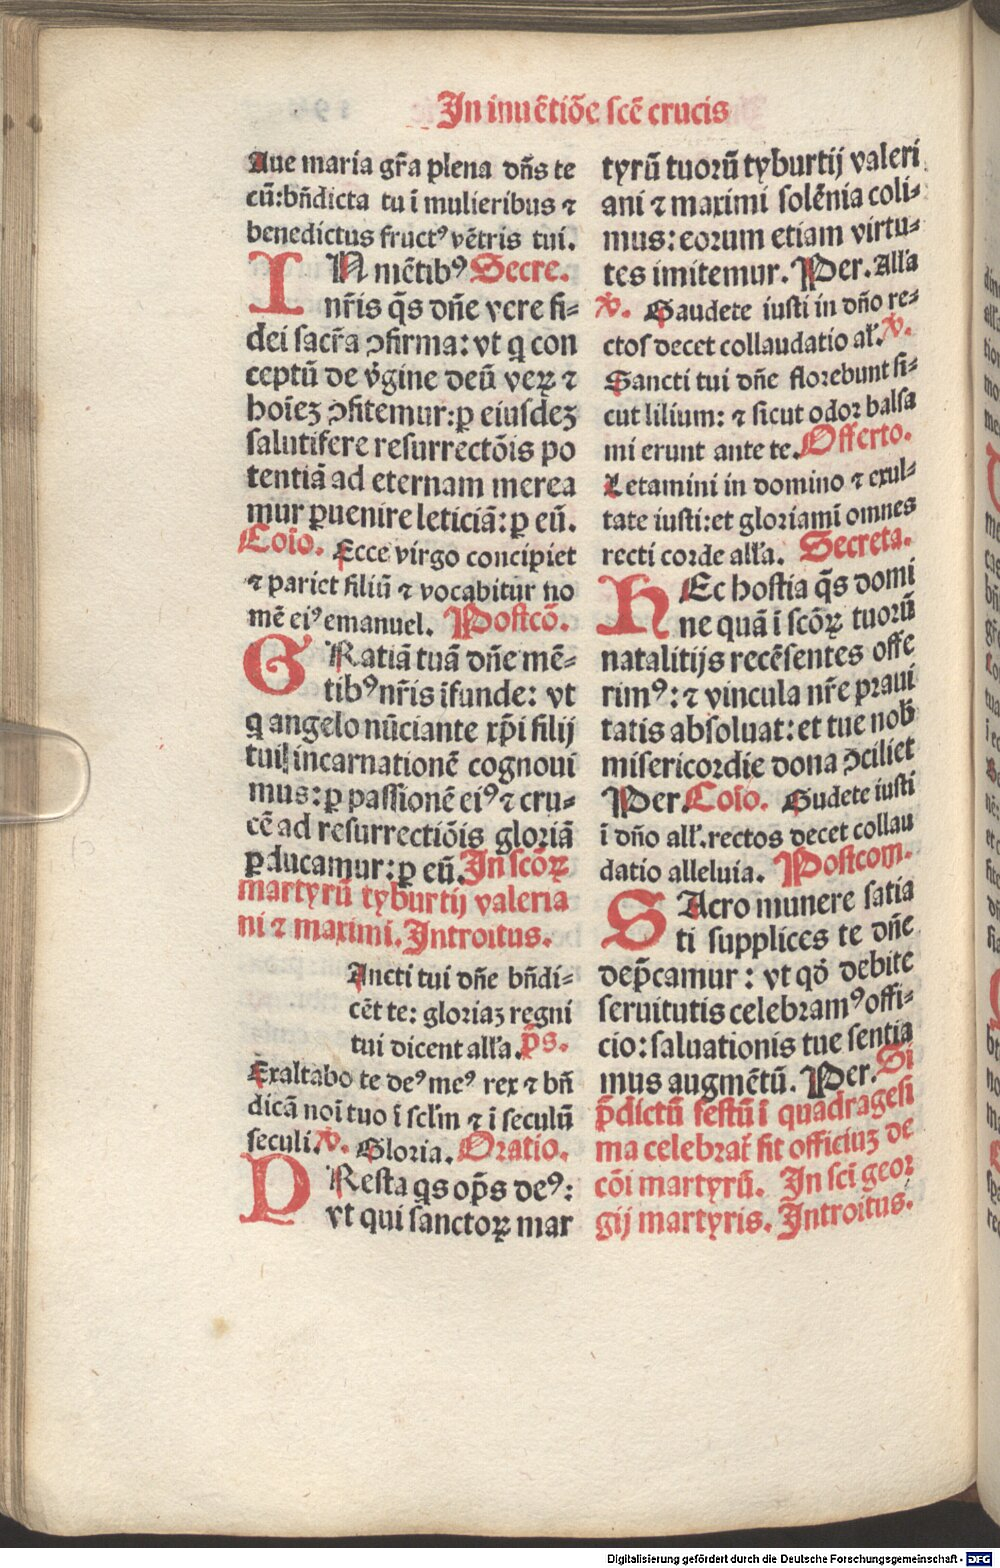 In inuētiōe scē crucis
Aue maria gr̄a plena dn̄s te
cū:bn̄dicta tu ī mulieribus ⁊
benedictus fructꝰ vētris tui.
IN mētibꝰ Secre.
nr̄is q̄s dn̄e vere fi⸗
dei sacr̄a ↄfirma: vt q con
ceptū de v̓gine deū veꝝ ⁊
hoīeꝫ ↄfitemur:ꝑ eiusdeꝫ
salutifere resurrectōis po
tentiā ad eternam merea
mur ꝑuenire leticiā: ꝑ eū.
Coīo. Ecce virgo concipiet
⁊ pariet filiū ⁊ vocabitur no
mē eiꝰ emanuel. Postcō.
GRatiā tuā dn̄e mē⸗
tibꝰ nr̄is īfunde: vt
q angelo nūciante xp̄i filij
tui incarnationē cognoui
mus: ꝑ passionē eiꝰ ⁊ cru⸗
cē ad resurrectiōis gloriā
ꝑducamur: ꝑ eū. In scōꝝ
martyrū tyburtij valeria
ni ⁊ maximi. Introitus.
Ancti tui dn̄e bn̄di⸗
cēt te: gloriaꝫ regni
tui dicent alľa. p̄s.
Exaltabo te deꝰ meꝰ rex ⁊ bn̄
dicā noī tuo ī scľm ⁊ ī seculū
seculi. v̓. Gloria. Oratio.
PResta qs op̄s deꝰ:
vt qui sanctoꝝ mar
tyrū tuoꝛū tyburtij valeri
ani ⁊ maximi solēnia coli⸗
mus: eorum etiam virtu⸗
tes imitemur. Per. Alľa
v̓. Gaudete iusti in dn̄o re⸗
ctos decet collaudatio aľ. v̓.
Sancti tui dn̄e florebunt si⸗
cut lilium: ⁊ sicut odoꝛ balsa
mi erunt ante te. Offerto.
Letamini in domino ⁊ exul⸗
tate iusti: et gloriamī omnes
recti corde alľa. Secreta.
HEc hostia q̄s domi
ne quā ī scōꝝ tuorū
natalitijs recēsentes offe
rimꝰ: ⁊ vincula nr̄e praui
tatis absoluat: et tue nob̄
misericordie dona ↄciliet
Per. Coīo. Gudete iusti
ī dn̄o alľ. rectos decet collau
datio alleluia. Postcom.
SAcro munere satia
ti supplices te dn̄e
dep̄camur: vt qō debite
seruitutis celebꝛamꝰ offi⸗
cio: saluationis tue sentia
mus augmētū. Per. Si
p̄dictū festū ī quadragesi
ma celebrat̄ fit officiuꝫ de
cōi martyrū. In scī geoꝛ
gij martyris. Introitus.
Digitalisierung gefördert durch die Deutsche Forschungsgemeinschaft - DFG